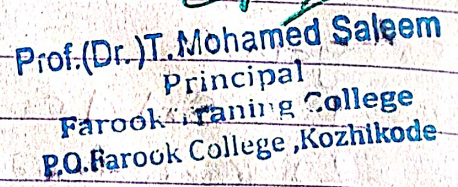 Prof.(Dr.)T.Mohamed Saleem
Principal
Farook Traning College
P.O.Farook College ,Kozhikode